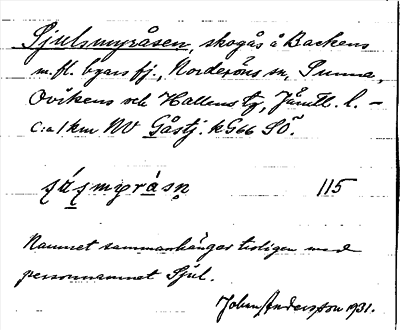 Sjulsmyråsen, skogås å Backens
m.fl. byars fj., Norderöns sn, Sunne,
Ovikens och Hallens tg, Jämtl. l. –
C:a 1 km NV Gåstj. k G66 SÖ.
115
Namnet sammanhänger troligen med
personnamnet Sjul.
Johan Andersson 1931.